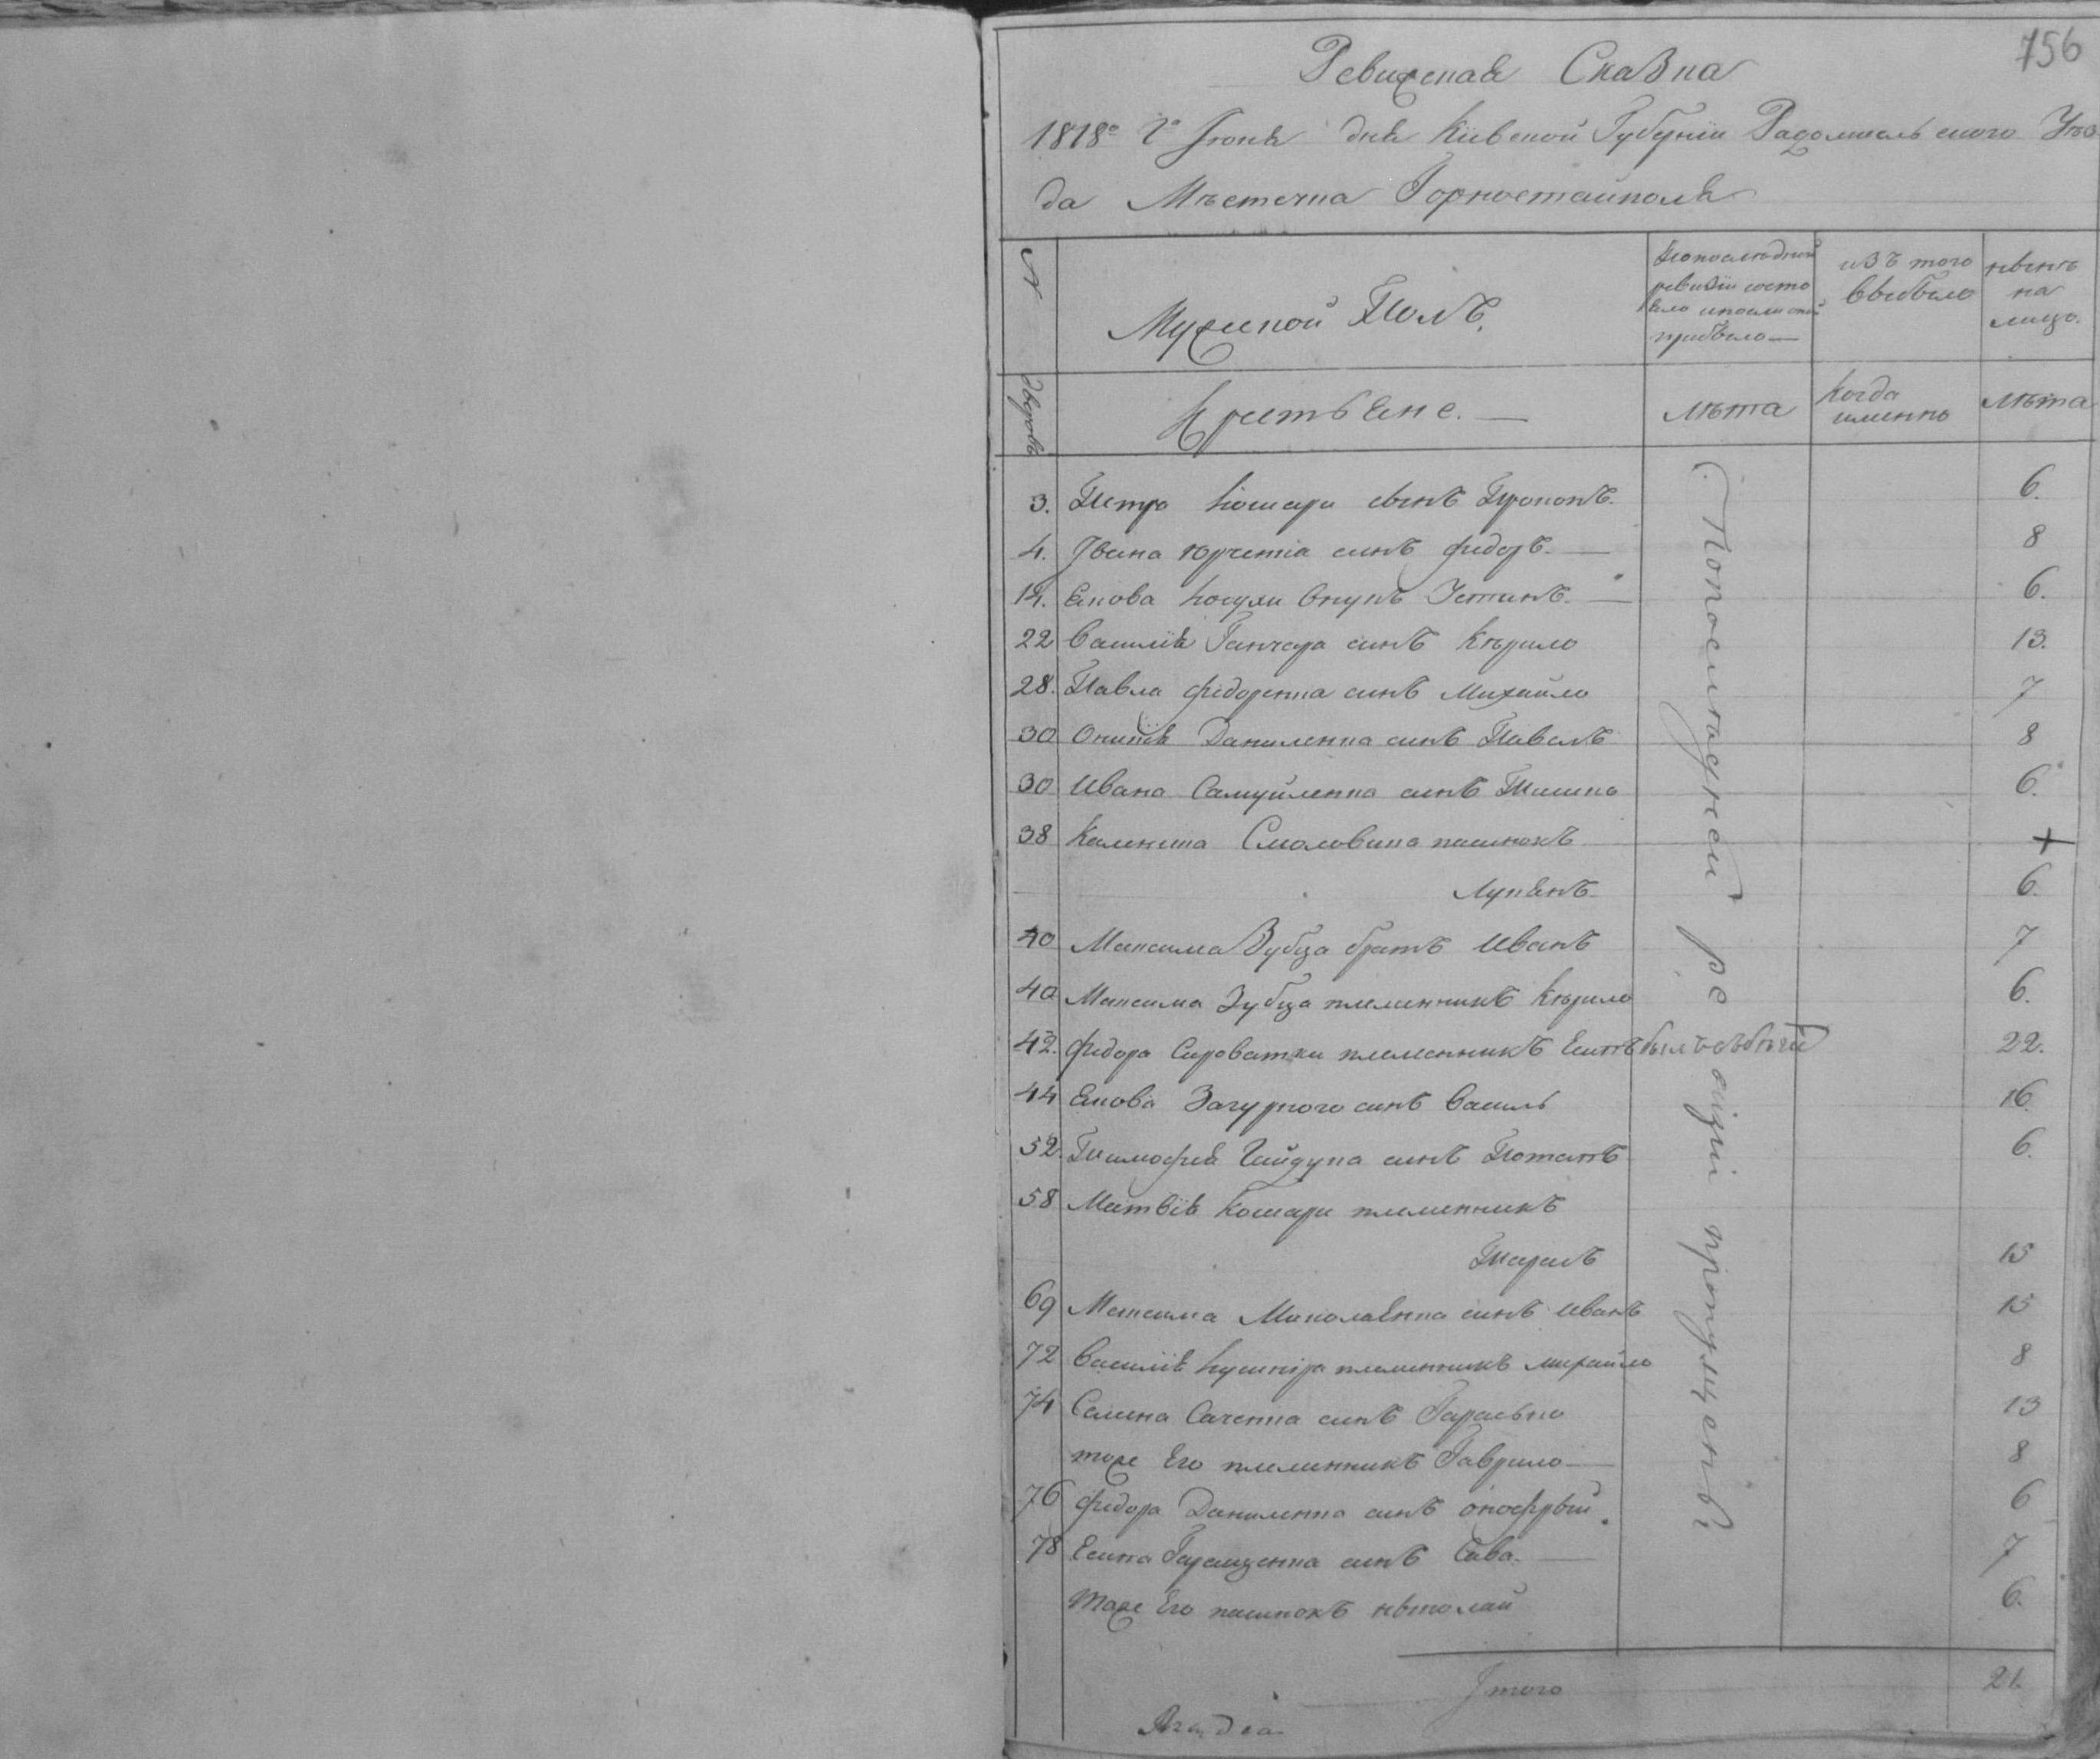 756
Ревижская Сказка
1818го Іюня дня Кіевской Губерніи Радомысльского Уѣз
да Мѣстечка Горностайполя
№ Мужеской Полъ. Попослѣдней ревизіи состояло ипослѣ оной прибыло— изъ того выбыло нынѣ на лицо.
дворовъ Крестьяне.— лѣта Когда именно лѣта
Попослѣдней ревизіи пропущены
3. Петра Кошари сынъ Прокопъ. 6.
4. Ивана Юрченка синъ федоръ.— 8
14. Якова Косухи Внукъ Устинъ.— 6.
22 Василія Ганчара синъ Кѣрило 13.
28. Павла федоренка синъ Михайло 7
30 Даниленка синъ Павелъ 8
30 Ивана Самуйленка синъ Тишко 6.
38 Каленика Смоловика пасинокъ +
Лукянъ 6.
40 Максима Зубца братъ Иванъ 7
40 Максима Зубца племенникъ Кѣрило 6.
42. федора Сироватки племенникъ Есипъ былъ вбѣгѣ 22.
44 Якова Загурного синъ Василь 16
52. Тимофея Гайдука синъ Потапъ 6.
58 Матвія Кошари племенникъ
Тарасъ 15
69 Максима Миколаенка синъ Иванъ 15
72 Василія Кушніра племенникъ михайло 8
74 Семена Саченка синъ Гарасько 13
тоже Его племенникъ Гаврило— 8
76 федора Даниленка синъ онофрый. 6
78 Есипа Геращенка синъ Сава.— 7
Тоже Его пасинокъ нѣколай 6.
Ітого 21.